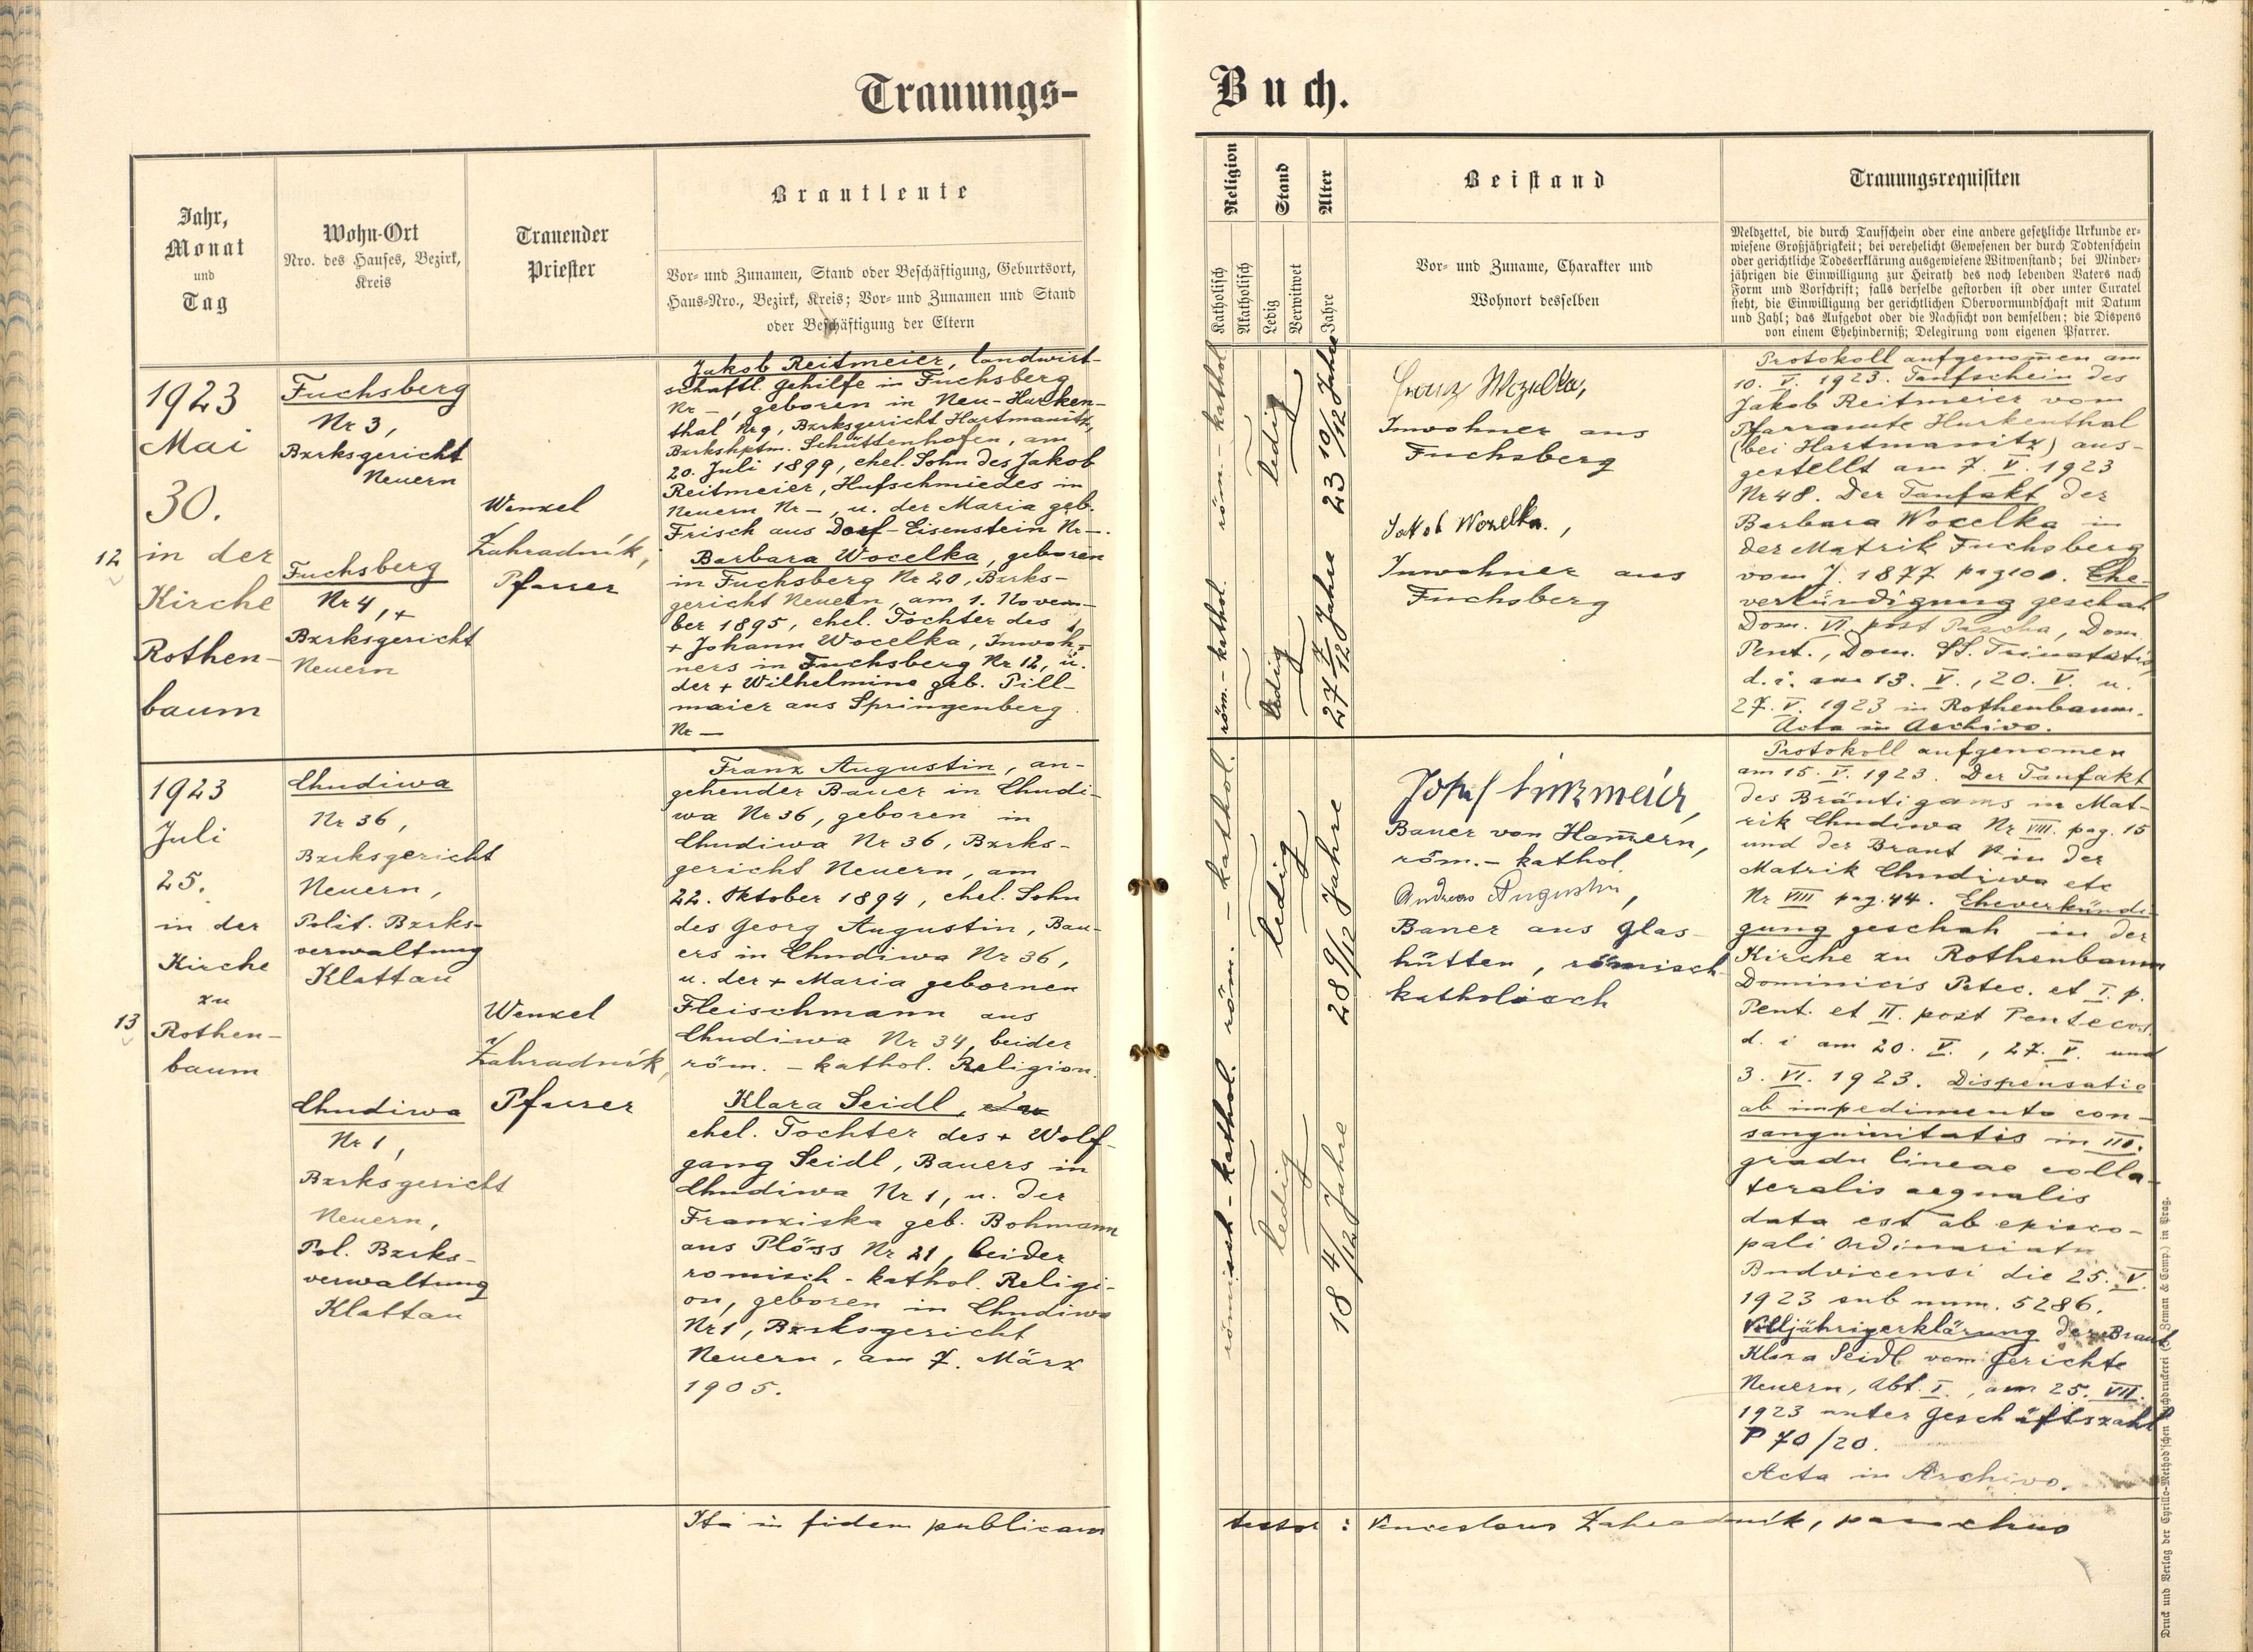 Trauungs-
Jahr,
Monat
und
Tag
Wohn-Ort
Nro. des Hauses, Bezirk,
Kreis
Trauender
Priester
Brautleute
Vor- und Zunamen, Stand oder Beschäftigung, Geburtsort,
Haus-Nro., Bezirk, Kreis; Vor- und Zunamen und Stand
oder Beschäftigung der Eltern
12
1923
Mai
30.
in der
Kirche
Rothen-
baum
Fuchsberg
Nr 3,
Bzrksgericht
Neuern
Fuchsberg
Nr 4,
Bzrksgericht
Neuern
Wenzel
Zahradník,
Pfarrer
Jakob Reitmeier, landwirt-
schaftl. Gehilfe in Fuchsberg
Nr –, geboren in Neu-Hurken-
thal Nr 9, Bzrksgericht Hartmanitz,
Bzrkshptm. Schüttenhofen, am
20. Juli 1899, ehel. Sohn des Jakob
Reitmeier, Hufschmiedes in
Neuern Nr –, u. der Maria geb.
Frisch aus Dorf-Eisenstein Nr –.
Barbara Wocelka, geboren
in Fuchsberg Nr 20, Bzrks-
gericht Neuern, am 1. Novem-
ber 1895, ehel. Tochter des
+ Johann Wocelka, Inwoh-
ners in Fuchsberg Nr 12, u.
der + Wilhelmine geb. Pill-
maier aus Springenberg
Nr —
13
1923
Juli
25.
in der
Kirche
zu
Rothen-
baum
Chudiwa
Nr 36,
Bzrksgericht
Neuern,
Polit. Bzrks-
verwaltung
Klattau
Chudiwa
Nr 1,
Bzrksgericht
Neuern,
Pol. Bzrks-
verwaltung
Klattau
Wenzel
Zahradník,
Pfarrer
Franz Augustin, an-
gehender Bauer in Chudi-
wa Nr 36, geboren in
Chudiwa Nr 36, Bzrks-
gericht Neuern, am
22. Oktober 1894, ehel. Sohn
des Georg Augustin, Bau-
ers in Chudiwa Nr 36,
u. der + Maria gebornen
Fleischmann aus
Chudiwa Nr 34, beider
röm. - kathol. Religion.
Klara Seidl,
ehel. Tochter des + Wolf-
gang Seidl, Bauers in
Chudiwa Nr 1, u. der
Franziska geb. Bohmann
aus Plöss Nr 21, beider
romisch - kathol. Religi-
on, geboren in Chudiwa
Nr 1, Bzrksgericht
Neuern, am 7. März
1905.
Ita in fidem publicam
Buch.
Religion
Katholisch
Akatholisch
Stand
Ledig
Verwitwet
Alter
Jahre
Beistand
Vor- und Zuname, Charakter und
Wohnort desselben
Trauungsrequisiten
Meldzettel, die durch Taufschein oder eine andere gesetzliche Urkunde er-
wiesene Großjährigkeit; bei verehelicht Gewesenen der durch Todtenschein
oder gerichtliche Todeserklärung ausgewiesene Witwenstand; bei Minder-
jährigen die Einwilligung zur Heirath des noch lebenden Vaters nach
Form und Vorschrift; falls derselbe gestorben ist oder unter Curatel
steht, die Einwilligung der gerichtlichen Obervormundschaft mit Datum
und Zahl; das Aufgebot oder die Nachsicht von demselben; die Dispens
von einem Ehehinderniß; Delegirung vom eigenen Pfarrer.
röm. - kathol.
ledig
23 10/12 Jahre
röm. - kathol.
ledig
27 7/12 Jahre
Franz Wozelka,
Inwohner aus
Fuchsberg
Jakob Wozelka.,
Inwohner aus
Fuchsberg
Protokoll aufgenom̄en am
10. V. 1923. Taufschein des
Jakob Reitmeier vom
Pfarramte Hurkenthal
(bei Hartmanitz) aus-
gestellt am 7. V. 1923
Nr 48. Der Taufakt der
Barbara Wocelka in
der Matrik Fuchsberg
vom J. 1877 pag 100. Ehe-
verkündigung geschah
Dom. VI. post Pascha, Dom.
Pent., Dom. SS. Trinitatis,
d. i. am 13. V., 20. V. u.
27. V. 1923 in Rothenbaum.
Acta in Archivo.
röm. - kathol.
ledig
28 9/12 Jahre
römisch - kathol.
ledig
18 4/12 Jahre
Josef Linzmeier,
Bauer von Ham̄ern,
röm. - kathol.
Andreas Augustin,
Bauer aus Glas-
hütten, römisch
katholisch
Protokoll aufgenomen
am 15. V. 1923. Der Taufakt
des Bräutigams in Mat-
rik Chudiwa Nr VIII. pag. 15
und der Braut in der
Matrik Chudiwa etc
Nr VIII pag. 44. Eheverkündi-
gung geschah in der
Kirche zu Rothenbaum
Dominicis Petec. et I. p.
Pent. et II. post Pentecos.
d. i am 20. V., 27. V. und
3. VI. 1923. Dispensatio
ab impedimento con-
sanguinitatis in III.
gradu lineae colla-
teralis aequalis
data est ab episco-
pali Ordinariatu
Budvicensi die 25. V.
1923 sub num. 5286.
Volljährigerklärung der Braut
Klara Seidl vom Gerichte
Neuern, Abt. I., am 25. VII.
1923 unter Geschäftszahl
P 70/20.
Acta in Archivo.
testor : Venceslaus Zahradník, parochus
Druck und Verlag der Cyrillo-Method'schen Buchdruckerei (Zeman & Comp.) in Prag.